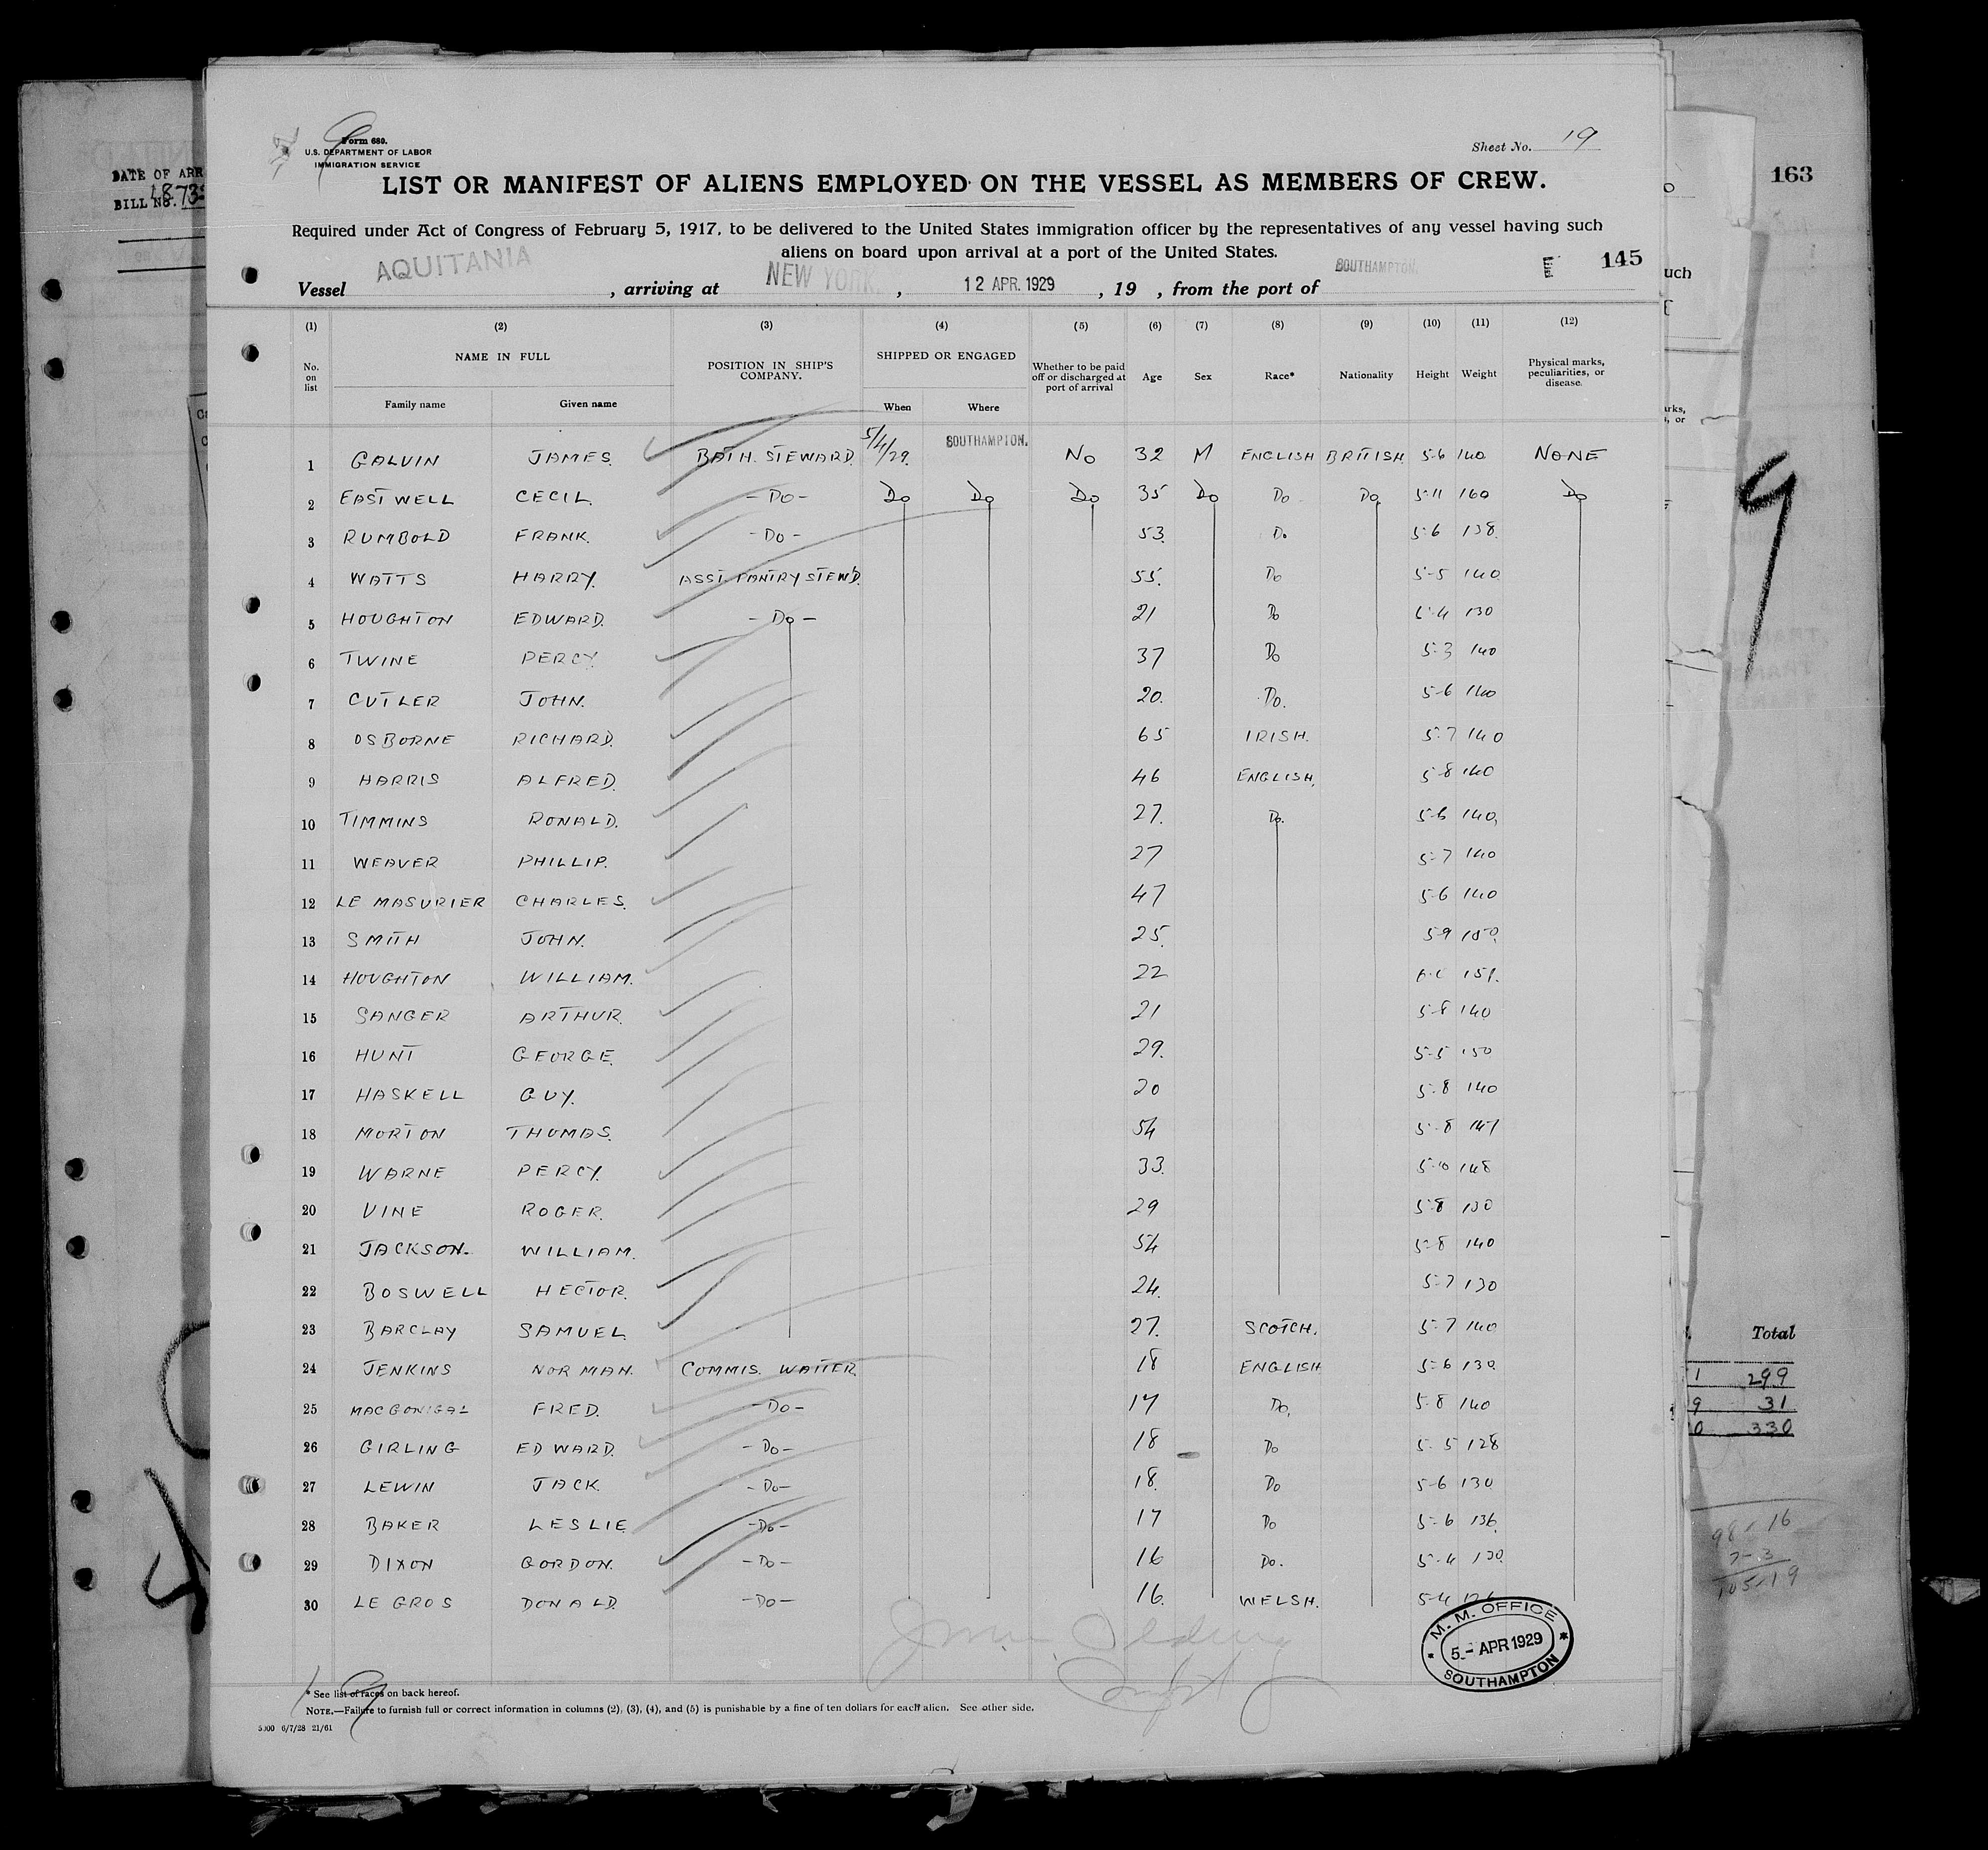 Form 680.
U.S. DEPARTMENT OF LABOR
IMMIGRATION SERVICE
Sheet No. 19
LIST OR MANIFEST OF ALIENS EMPLOYED ON THE VESSEL AS MEMBERS OF CREW.
Required under Act of Congress of February 5, 1917, to be delivered to the United States immigration officer by the representatives of any vessel having such
aliens on board upon arrival at a port of the United States.
145
Vessel AQUITANIA, arriving at NEW YORK, 12 APR. 1929, 19 , from the port of SOUTHAMPTON.
(1) (2) (3) (4) (5) (6) (7) (8) (9) (10) (11) (12)
No. on list NAME IN FULL POSITION IN SHIP'S COMPANY. SHIPPED OR ENGAGED Whether to be paid off or discharged at port of arrival Age Sex Race* Nationality Height Weight Physical marks, peculiarities, or disease.
Family name Given name When Where
1 GALVIN JAMES. BATH. STEWARD. 5/4/29. SOUTHAMPTON. No 32 M ENGLISH BRITISH. 5-6 140 NONE
2 EASTWELL CECIL. -Do- Do Do Do 35 Do Do Do 5-11 160 Do
3 RUMBOLD FRANK. -Do- 53. Do 5-6 138.
4 WATTS HARRY. ASST. PANTRY STEW'D. 55. Do 5-5 140
5 HOUGHTON EDWARD. -Do- 21 Do 130
6 TWINE PERCY. 37 Do 5-3 140
7 CUTLER JOHN. 20. Do. 5-6 140
8 OSBORNE RICHARD. 65 IRISH. 5-7 140
9 HARRIS ALFRED. 46 ENGLISH. 5-8 140
10 TIMMINS RONALD. 27. Do. 5-6 140.
11 WEAVER PHILLIP. 27 5-7 140
12 LE MASURIER CHARLES. 47 5-6 140
13 SMITH JOHN. 25. 5-9 150.
14 HOUGHTON WILLIAM. 22
15 SANGER ARTHUR. 21 5-8 140
16 HUNT GEORGE. 29. 5-5 150
17 HASKELL GUY. 20 5-8 140
18 MORTON THOMAS. 54 5-8
19 WARNE PERCY. 33. 5-10 148
20 VINE ROGER. 29 5-8 130
21 JACKSON. WILLIAM. 54 5-8 140
22 BOSWELL HECTOR. 24. 5-7 130
23 BARCLAY SAMUEL. 27. SCOTCH. 5-7 140
24 JENKINS NORMAN. COMMIS. WAITER. 18 ENGLISH 5-6 130.
25 MACGONIGAL FRED. -Do- 17 Do. 5-8 140
26 GIRLING EDWARD. -Do- 18 Do 5-5 128
27 LEWIN JACK. -Do- 18. Do 5-6 130
28 BAKER LESLIE -Do- 17 Do 5-6 136.
29 DIXON GORDON. -Do- 16 Do. 5-4 130.
30 LE GROS DONALD. -Do- 16. WELSH. 5-4
M. M. OFFICE
5 - APR 1929
SOUTHAMPTON
* See list of races on back hereof.
NOTE.—Failure to furnish full or correct information in columns (2), (3), (4), and (5) is punishable by a fine of ten dollars for each alien. See other side.
5000 6/7/28 21/61
DATE OF ARR
BILL NO.
163
uch
Total
299
31
330